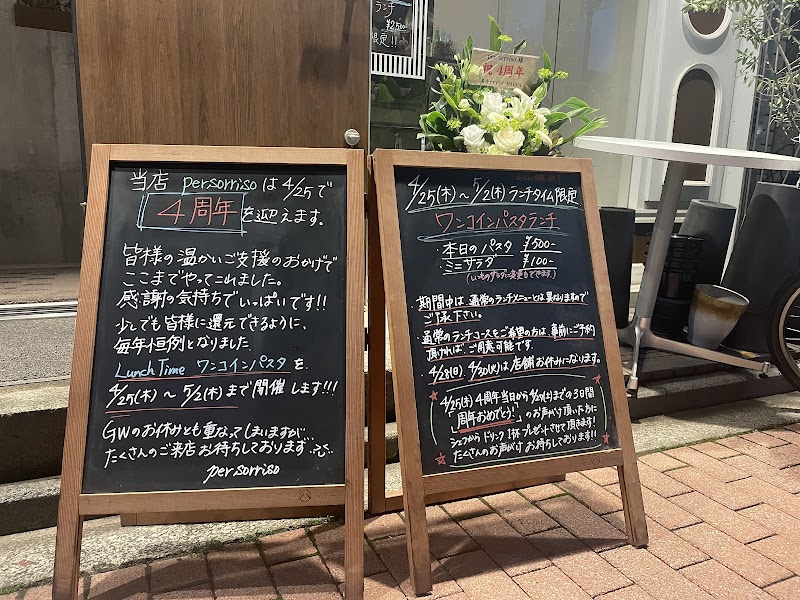 当店 persorrisoは4/25で
4周年を迎えます。
皆様の温かいご支援のおかげで
ここまでやってこれました。
感謝の気持ちでいっぱいです!!
少しでも皆様に還元できるように、
毎年恒例となりました
Lunch Time ワンコインパスタを
4/25(木)～5/2(木)まで開催します!!!
GWのお休みとも重なってしまいますが…
たくさんのご来店お待ちしております
persorriso
ランチ
¥2,500
限定!!
persorriso 様
祝4周年
4/25(木)～5/2(木)ランチタイム限定
ワンコインパスタランチ
・本日のパスタ ¥500-
・ミニサラダ ¥100-
(いつものサラダに変更もできます)
期間中は通常のランチメニューとは異なりますので
ご了承下さい。
・通常のランチコースをご希望の方は事前にご予約
頂ければ、ご用意可能です。
4/28(日) 4/30(火)は店舗お休みになります。
4/25(木)4周年当日から4/27(土)までの3日間
「周年おめでとう!」のお声がけ頂いた方に
シェフからドリンク1杯プレゼントさせて頂きます!
たくさんのお声がけお待ちしております!!